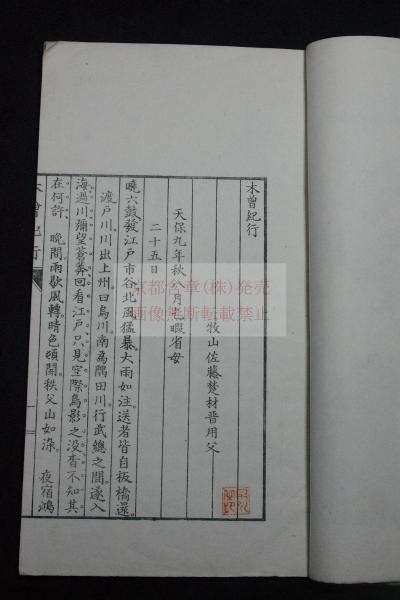 木曾紀行
牧山佐藤楚材晋用父
天保九年秋八月乞暇省母
二十五日
曉六鼓發江戸市谷北風猛暴大雨如注送者皆自板橋還
渡戸川川出上州曰烏川南爲隅田川行武總之間遂入
海過川彌望蒼莽回看江戸只見空際鳥影之没杳不知其
在何許 晩間雨歇風轉時色頓開秩父山如染 夜宿鴻
木曾紀行
京都含章(株)発売
画像無断転載禁止